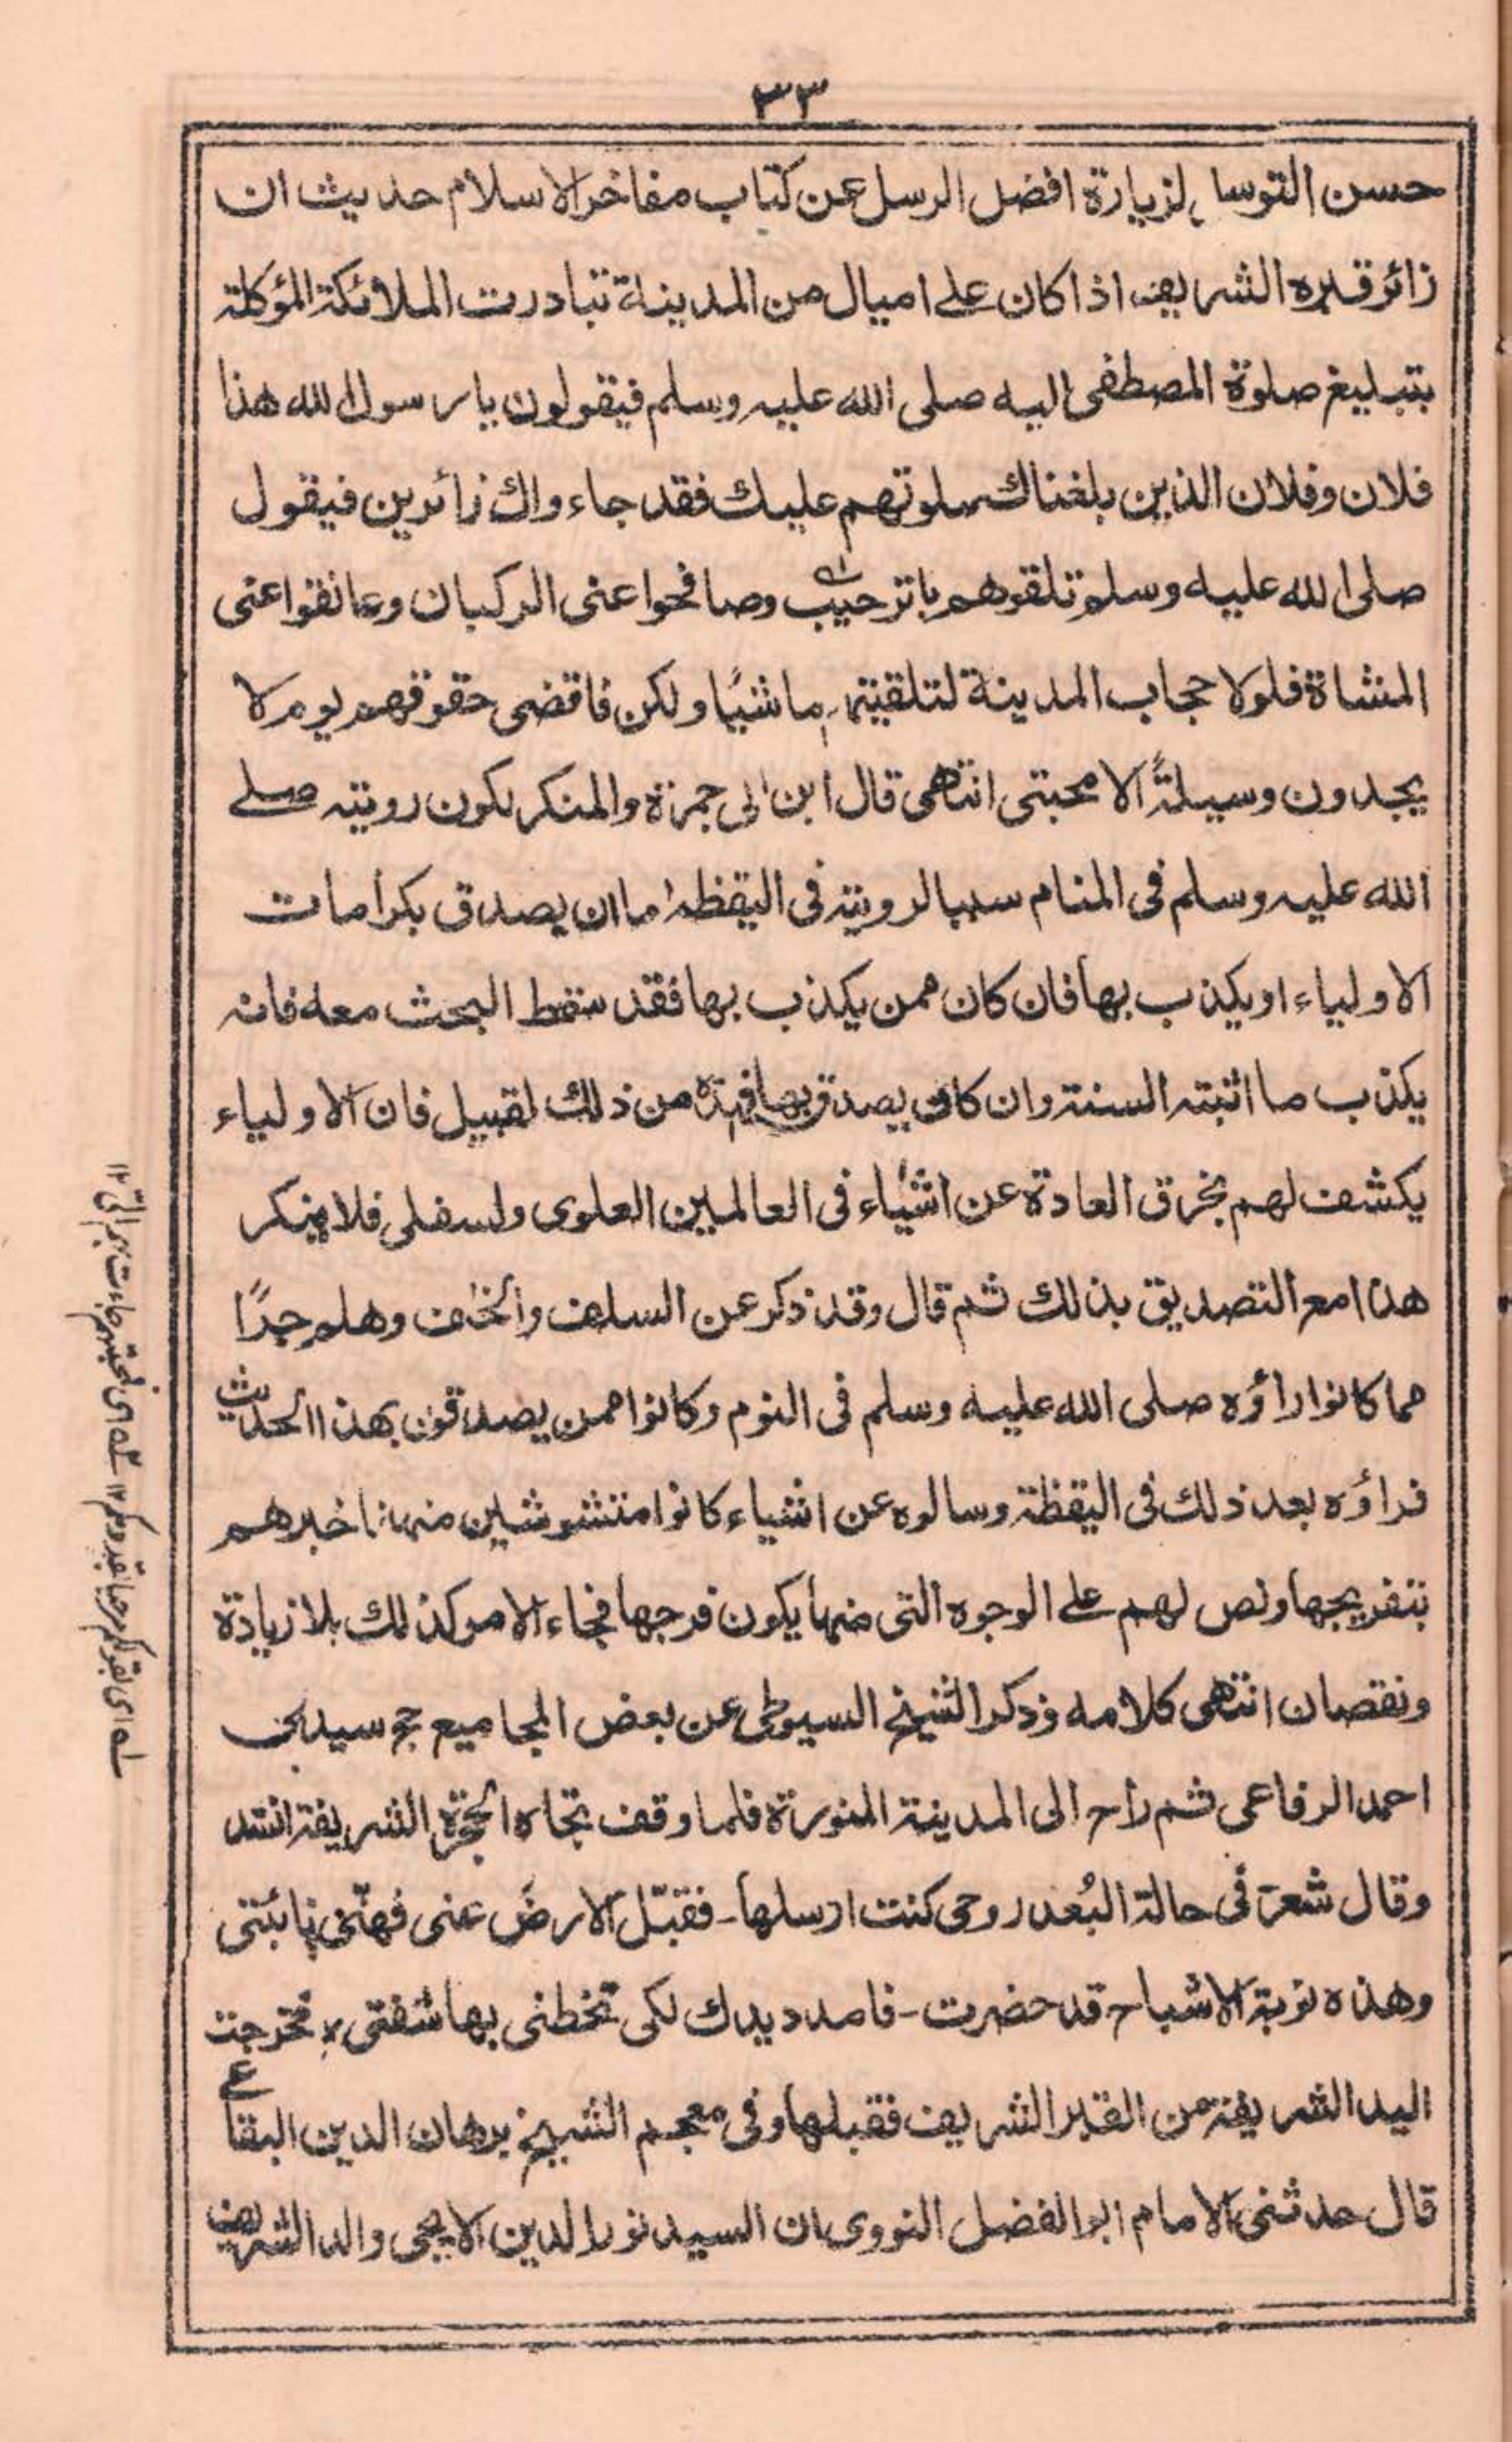 ٣٣
حسن التوسل لزيارة افضل الرسل عن كتاب مفاخر الاسلام حديث ان
زائر قبره الشريف اذا كان على اميال من المدينة تبادرت الملائكة المؤكلة
بتبليغ صلوة المصطفى اليه صلى الله عليه وسلم فيقولون يا رسول الله هذا
فلان وفلان الذين بلغناك صلوتهم عليك فقد جاءواك زائرين فيقول
صلى الله عليه وسلم تلقوهم باترحيب وصافحوا عنى الركبان وعانقوا عنى
المشاة فلولا حجاب المدينة لتلقيتهم ماشيًا ولكن فاقضى حقوقهم يوم لا
يجدون وسيلةً الا محبتى انتهى قال ابن ابى جمرة والمنكر لكون رويته صلے
الله عليه وسلم فى المنام سببا لرويته فى اليقظة اما ان يصدق بكرامات
الاولياء او يكذب بها فان كان ممن يكذب بها فقد سقط البحث معه فانه
يكذب ما اثبته السنة وان كان يصدق بها فهذه من ذلك لقبيل فان الاولياء
يكشف لهم بخرق العادة عن اشياء فى العالمين العلوى ولسفلى فلا ينكر
هذا مع التصديق بذلك ثم قال وقد ذكر عن السلف والخلف وهلم جرًا
مما كانوا راؤه صلى الله عليه وسلم فى النوم وكانوا ممن يصدقون بهذا الحديث
فراؤه بعد ذلك فى اليقظة وسالوه عن اشياء كانوا متشوشين منها فاخبرهم
بتفريجها ونص لهم على الوجوه التى منها يكون فرجها فجاء الامر كذلك بلا زيادة
ونقصان انتهى كلامه وذكر الشيخ السيوطى عن بعض المجاميع حج سيدى
احمد الرفاعى ثم راح الى المدينة المنورة فلما وقف تجاه الحجرة الشريفة انشد
وقال شعر فى حالة البُعد روحى كنت ارسلها - فقبّل الارضَ عنى فهىَ نائبتى
وهذه نوبة الاشباح قد حضرت - فامدد يدك لكى تخطنى بها شفتى ؛ فخرجت
اليد الشريفة من القبر الشريف فقبلها وفى معجم الشيخ برهان الدين البقاعے
قال حدثنى الامام ابو الفضل النووى ان السيد نور الدين الايجى والد الشريف